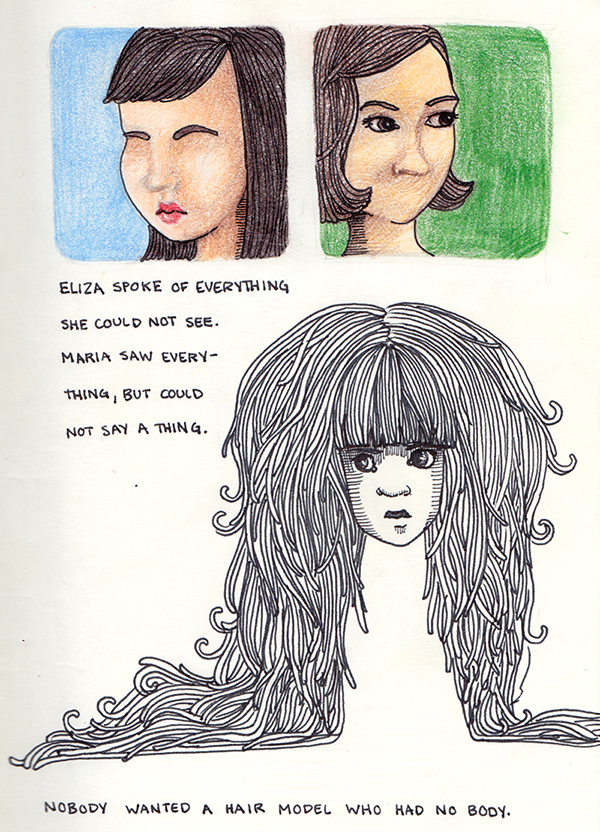 ELIZA SPOKE OF EVERYTHING
SHE COULD NOT SEE.
MARIA SAW EVERY-
THING, BUT COULD
NOT SAY A THING.
NOBODY WANTED A HAIR MODEL WHO HAD NO BODY.